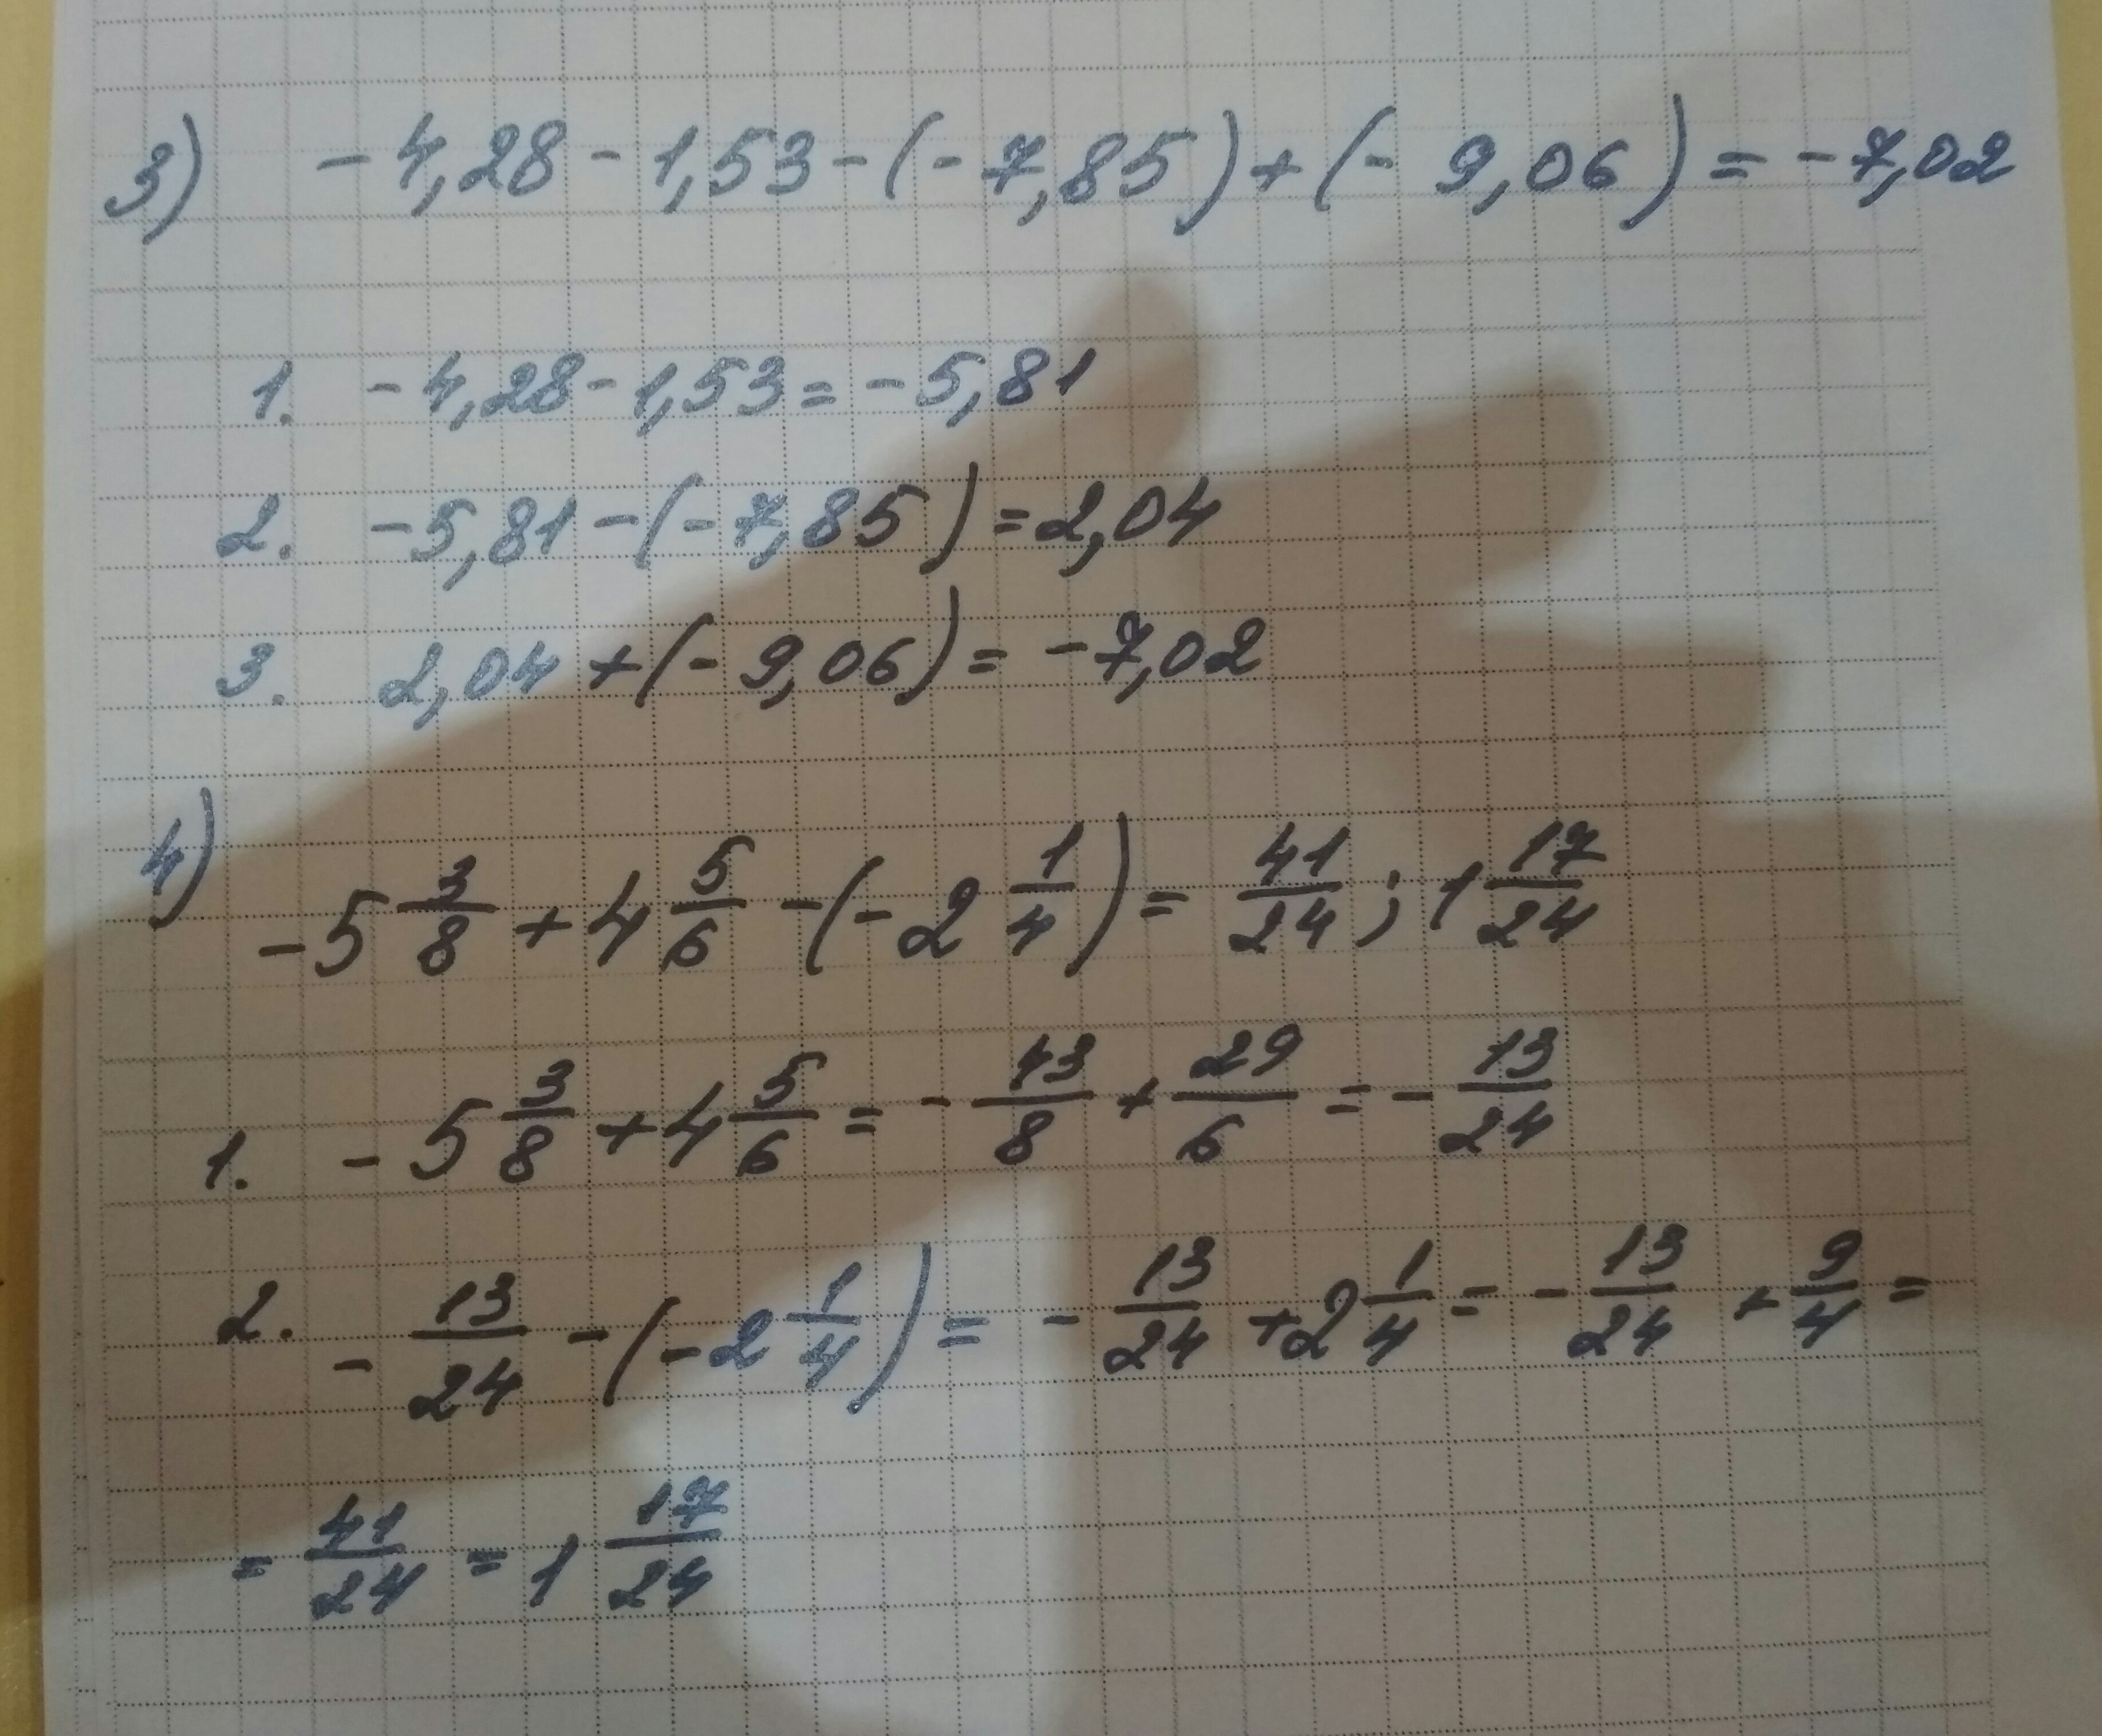 3) -4,28-1,53-(-7,85)+(-9,06)=-7,02
1. -4,28-1,53=-5,81
2. -5,81-(-7,85)=2,04
3. 2,04+(-9,06)=-7,02
4) -5 3/8 + 4 5/6 - (-2 1/4) = 41/24; 1 17/24
1. -5 3/8 + 4 5/6 = - 43/8 + 29/6 = - 13/24
2. - 13/24 - (-2 1/4) = - 13/24 + 2 1/4 = - 13/24 + 9/4 =
= 41/24 = 1 17/24